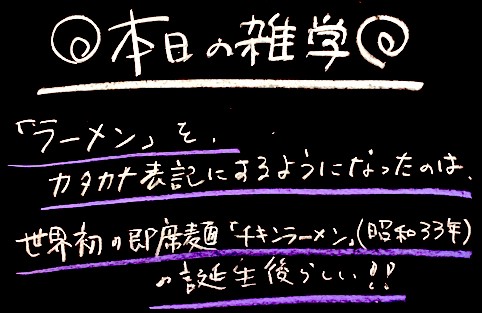 本日の雑学
「ラーメン」を、
カタカナ表記にするようになったのは、
世界初の即席麺「チキンラーメン」(昭和33年)
の誕生後らしい!!